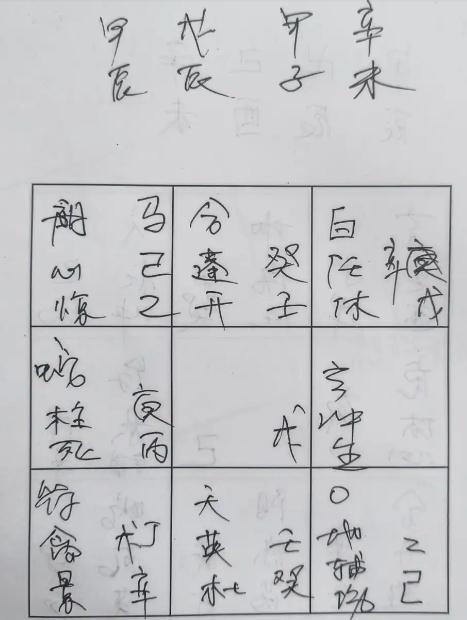 甲 戊 甲 辛
辰 辰 子 未
马 合 白
心 己 蓬 癸 任 辛
乙 开 壬 休 戊
庚 玄
柱 冲
死 丙 戊 生
符 天 O
丁 英 壬 地 乙
景 辛 杜 癸 辅 己